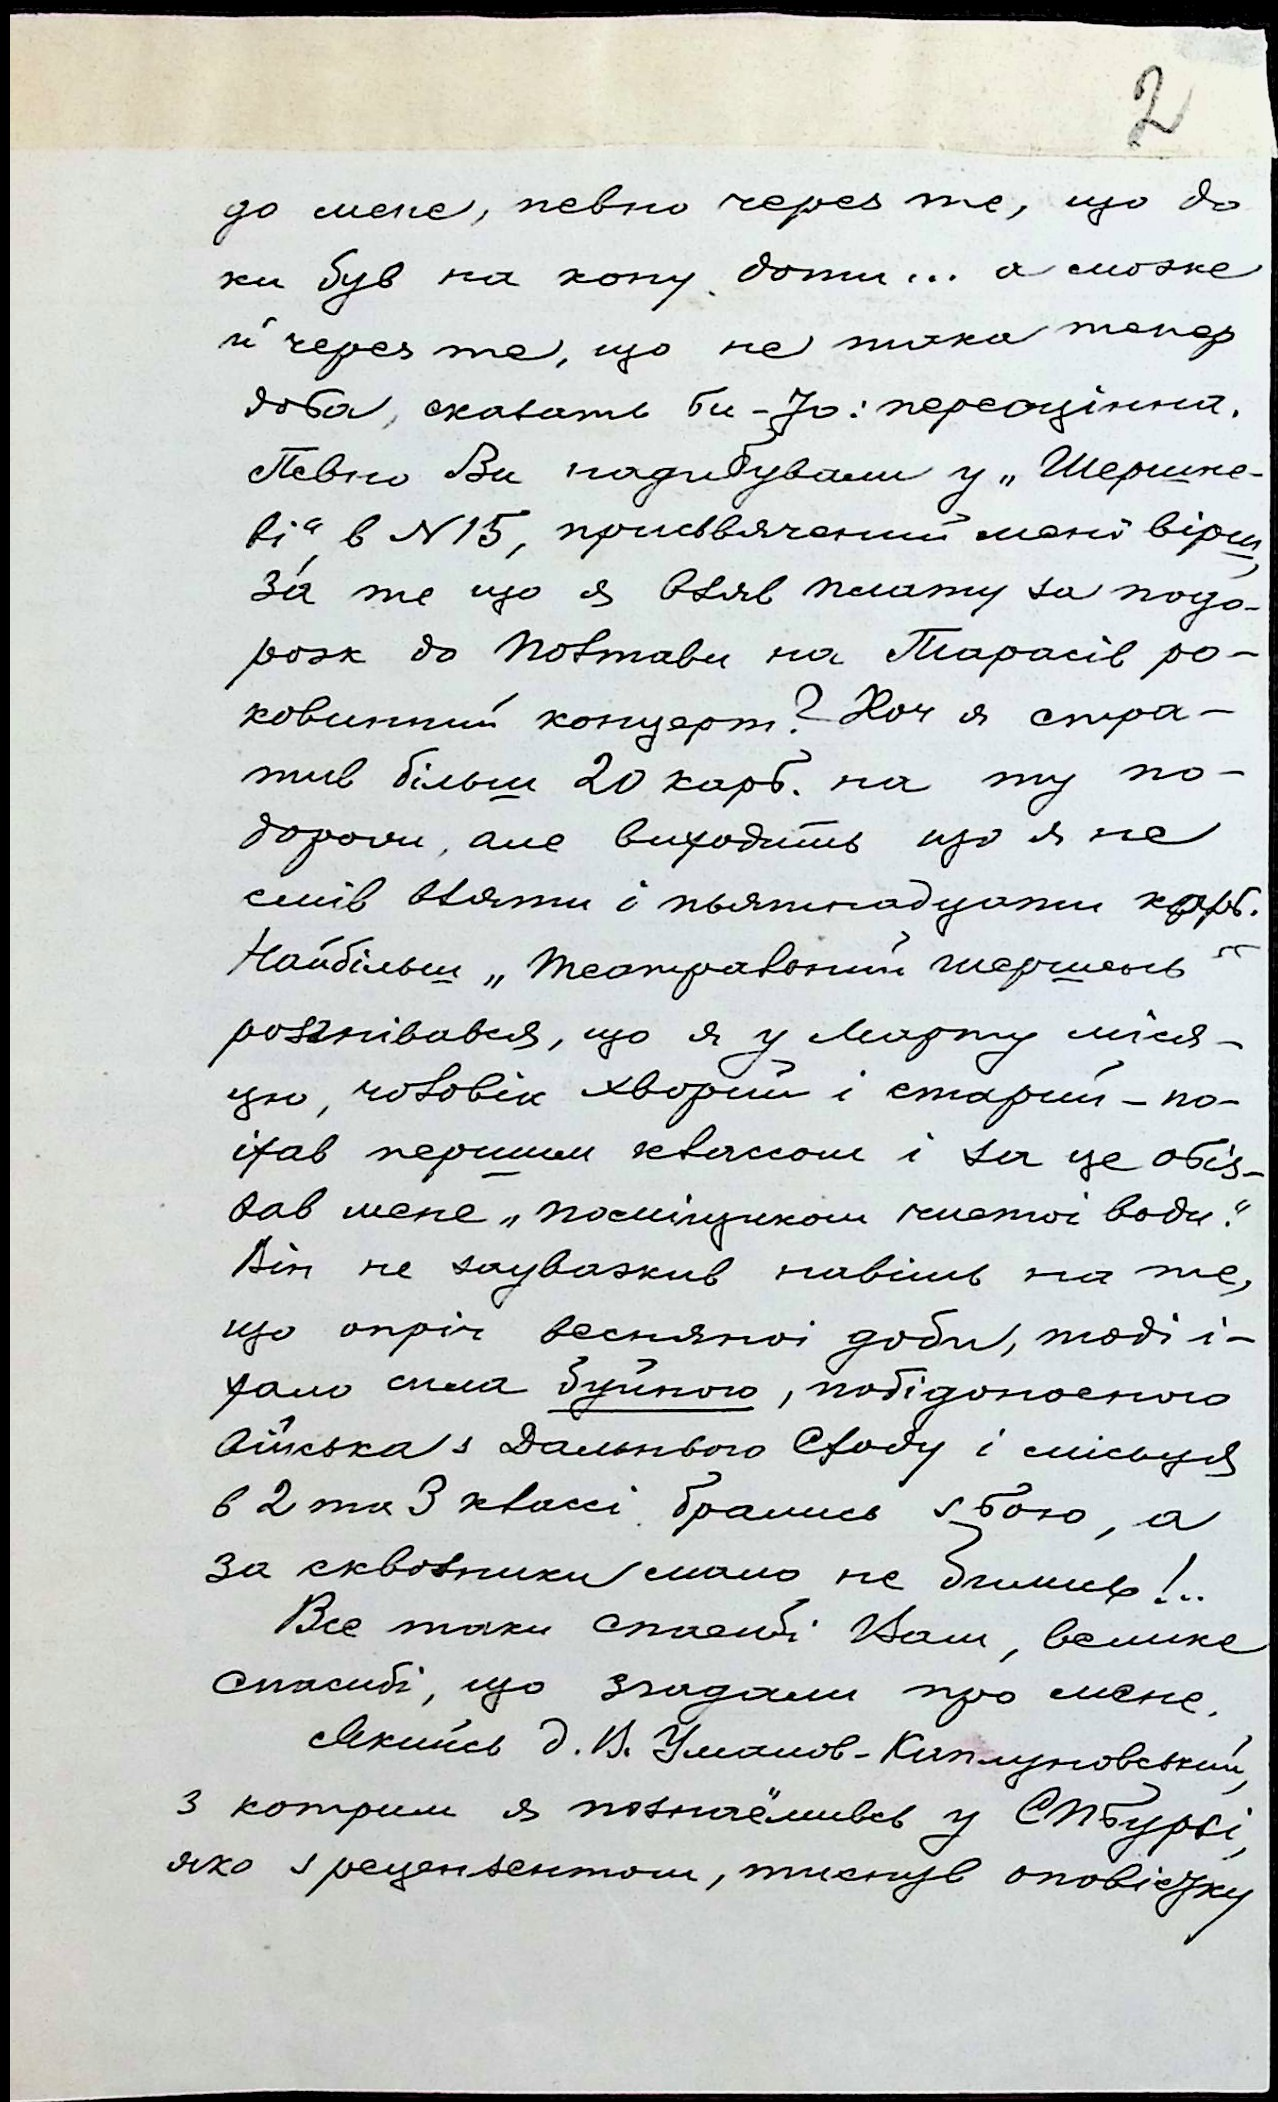 2
до мене, певно через те, що до
ки був на кону доти... а може
й через те, що не така тепер
доба, сказать би-б: переоцінна.
Певно Ви надибували у „Шерше-
ні“, в N 15, присьвячений мені вірш,
за те що я взяв плату за подо-
рож до Полтави на Тарасів ро-
ковинний концерт? Хоч я стра-
тив більш 20 карб. на ту по-
дорожи, але виходить що я не
смів взяти і пьятнадцати карб.
Найбільш „театральний шершень“
розгнівався, що я у Марту міся-
цю, чоловік хворий і старий – по-
їхав першим классом і за це обіз-
вав мене „поміщиком чистої води“.
Він не зауважив навіть на те,
що опріч весняної доби, тоді ї-
хало сила буйного, побідоносного
війська з Дальнього Сходу і місьця
в 2 та 3 классі брались з бою, а
за сквозники мало не бились!..
Все таки спасибі Вам, велике
спасибі, що згадали про мене.
Якийсь д. В. Уманов-Каплуновський,
з котрим я познаёмивсь у СПбурзі,
яко з рецензентом, тиснув оповістку